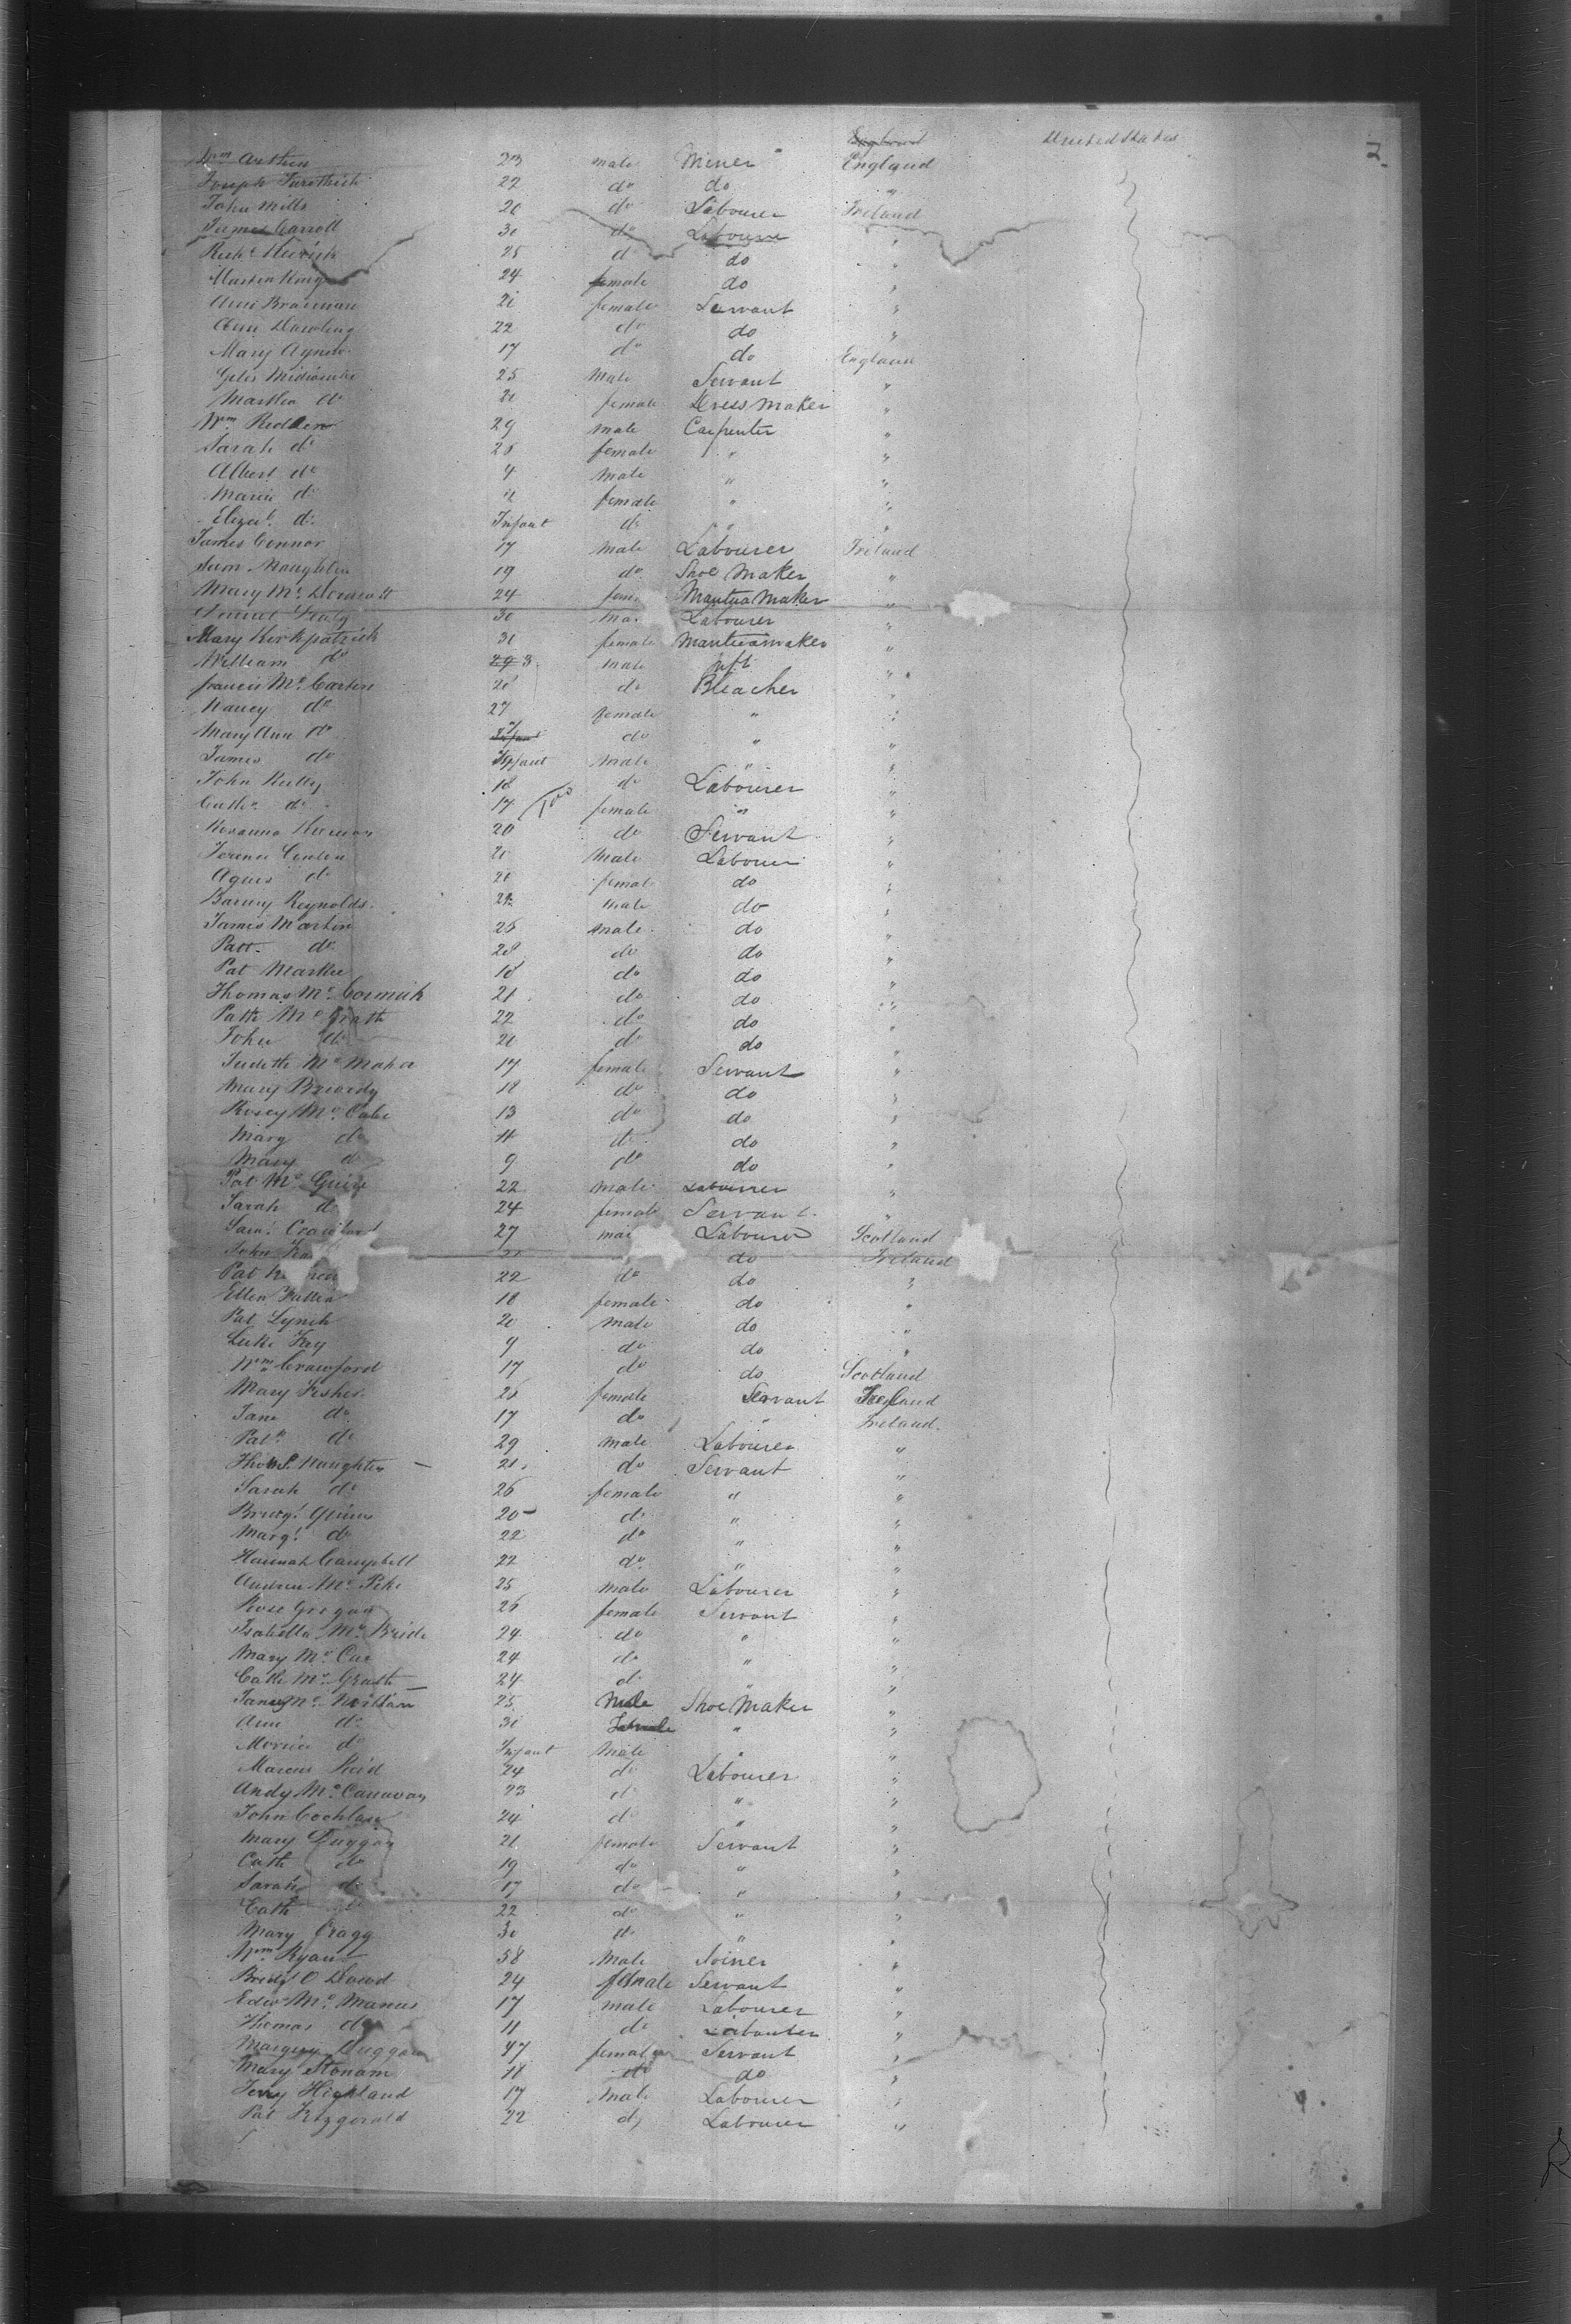 England United States 2.
Wm Arthur 23 male Miner England
Joseph 22 do do "
John Mills 20 do Labourer Ireland
James Carroll 30 do Labourer "
Richd 25 do do "
Martin King 24 male do "
Ann Brannan 21 female Servant "
Ann Dowling 22 do do "
Mary Agnew 17 do do England
Giles 25 Male Servant "
Martha do female Dress Maker "
Wm Redden 29 male Carpenter "
Sarah do 25 female " "
Albert do 4 Male " "
Maria do 2 female " "
Elizat. do Infant do " "
James Connor 17 Male Labourer Ireland
Naughten 19 do Shoe Maker "
Mary McDermott 24 fem Mantua Maker "
Healy 30 ma. Labourer "
Mary Kirkpatrick 31 female Mantuamaker "
William do 3 male "
Francis McCarten 28 do Bleacher "
Nancy do 27 female " "
Mary Ann do do " "
James do Infant Male " "
John Reilly 18 do Labourer "
Cathe do 17 female " "
Rosanna 20 do Servant "
Terence 20 Male Labourer "
Agnes do 20 female do "
Barney Reynolds. male do "
James Martin 25 male do "
Patt. do 28 do do "
Pat Markee 18 do do "
Thomas McCormick 21 do do "
Patk McGrath 22 do do "
John do 20 do do "
Judith McMahon 17 female Servant "
Mary Brady 18 do do "
Rosey McCabe 13 do do "
Mary do 11 do do "
Mary do 9 do do "
Pat McGuire 22 male Labourer "
Sarah do 24 female Servant "
Saml Crawford 27 mal Labourer Scotland
John do Ireland
Pat 22 do do "
Ellen Fallen 18 female do "
Pat Lynch 20 Male do "
Luke Fay 9 do do "
Wm Crawford 17 do do Scotland
Mary Fisher 25 female Servant
Jane do 17 do " Ireland
Patk do 29 Male Labourer "
Thos. Naughten 21 do Servant "
Sarah do 26 female " "
Bridgt Quinn 20 do " "
Margt do 22 do " "
Hannah Campbell 22 do " "
Andrew McPike 25 Male Labourer "
Rose Grogan 25 female Servant "
Isabella McBride 24 do " "
Mary McCue 24 do " "
Cath McGrath 24 do " "
James McMillan 25 Male Shoe Maker "
Ann do 30 female " "
do Infant Male " "
Marcus Reid 24 do Labourer "
Andy McCanavan 23 do " "
John Cochlan 24 do " "
Mary Duggan 21 female Servant "
Cath do 19 do " "
Sarah do 17 do " "
Cath do 22 do " "
Mary Cragg 30 do " "
Wm Ryan 38 Male Joiner "
Bridgt O Dowd 24 female Servant "
Edwd McManus 17 male Labourer "
Thomas do 11 do Labourer "
Margery Duggan 47 female Servant "
Mary Stonam 18 do do "
Terry Highland 17 Male Labourer "
Pat Fitzgerald 22 do Labourer "